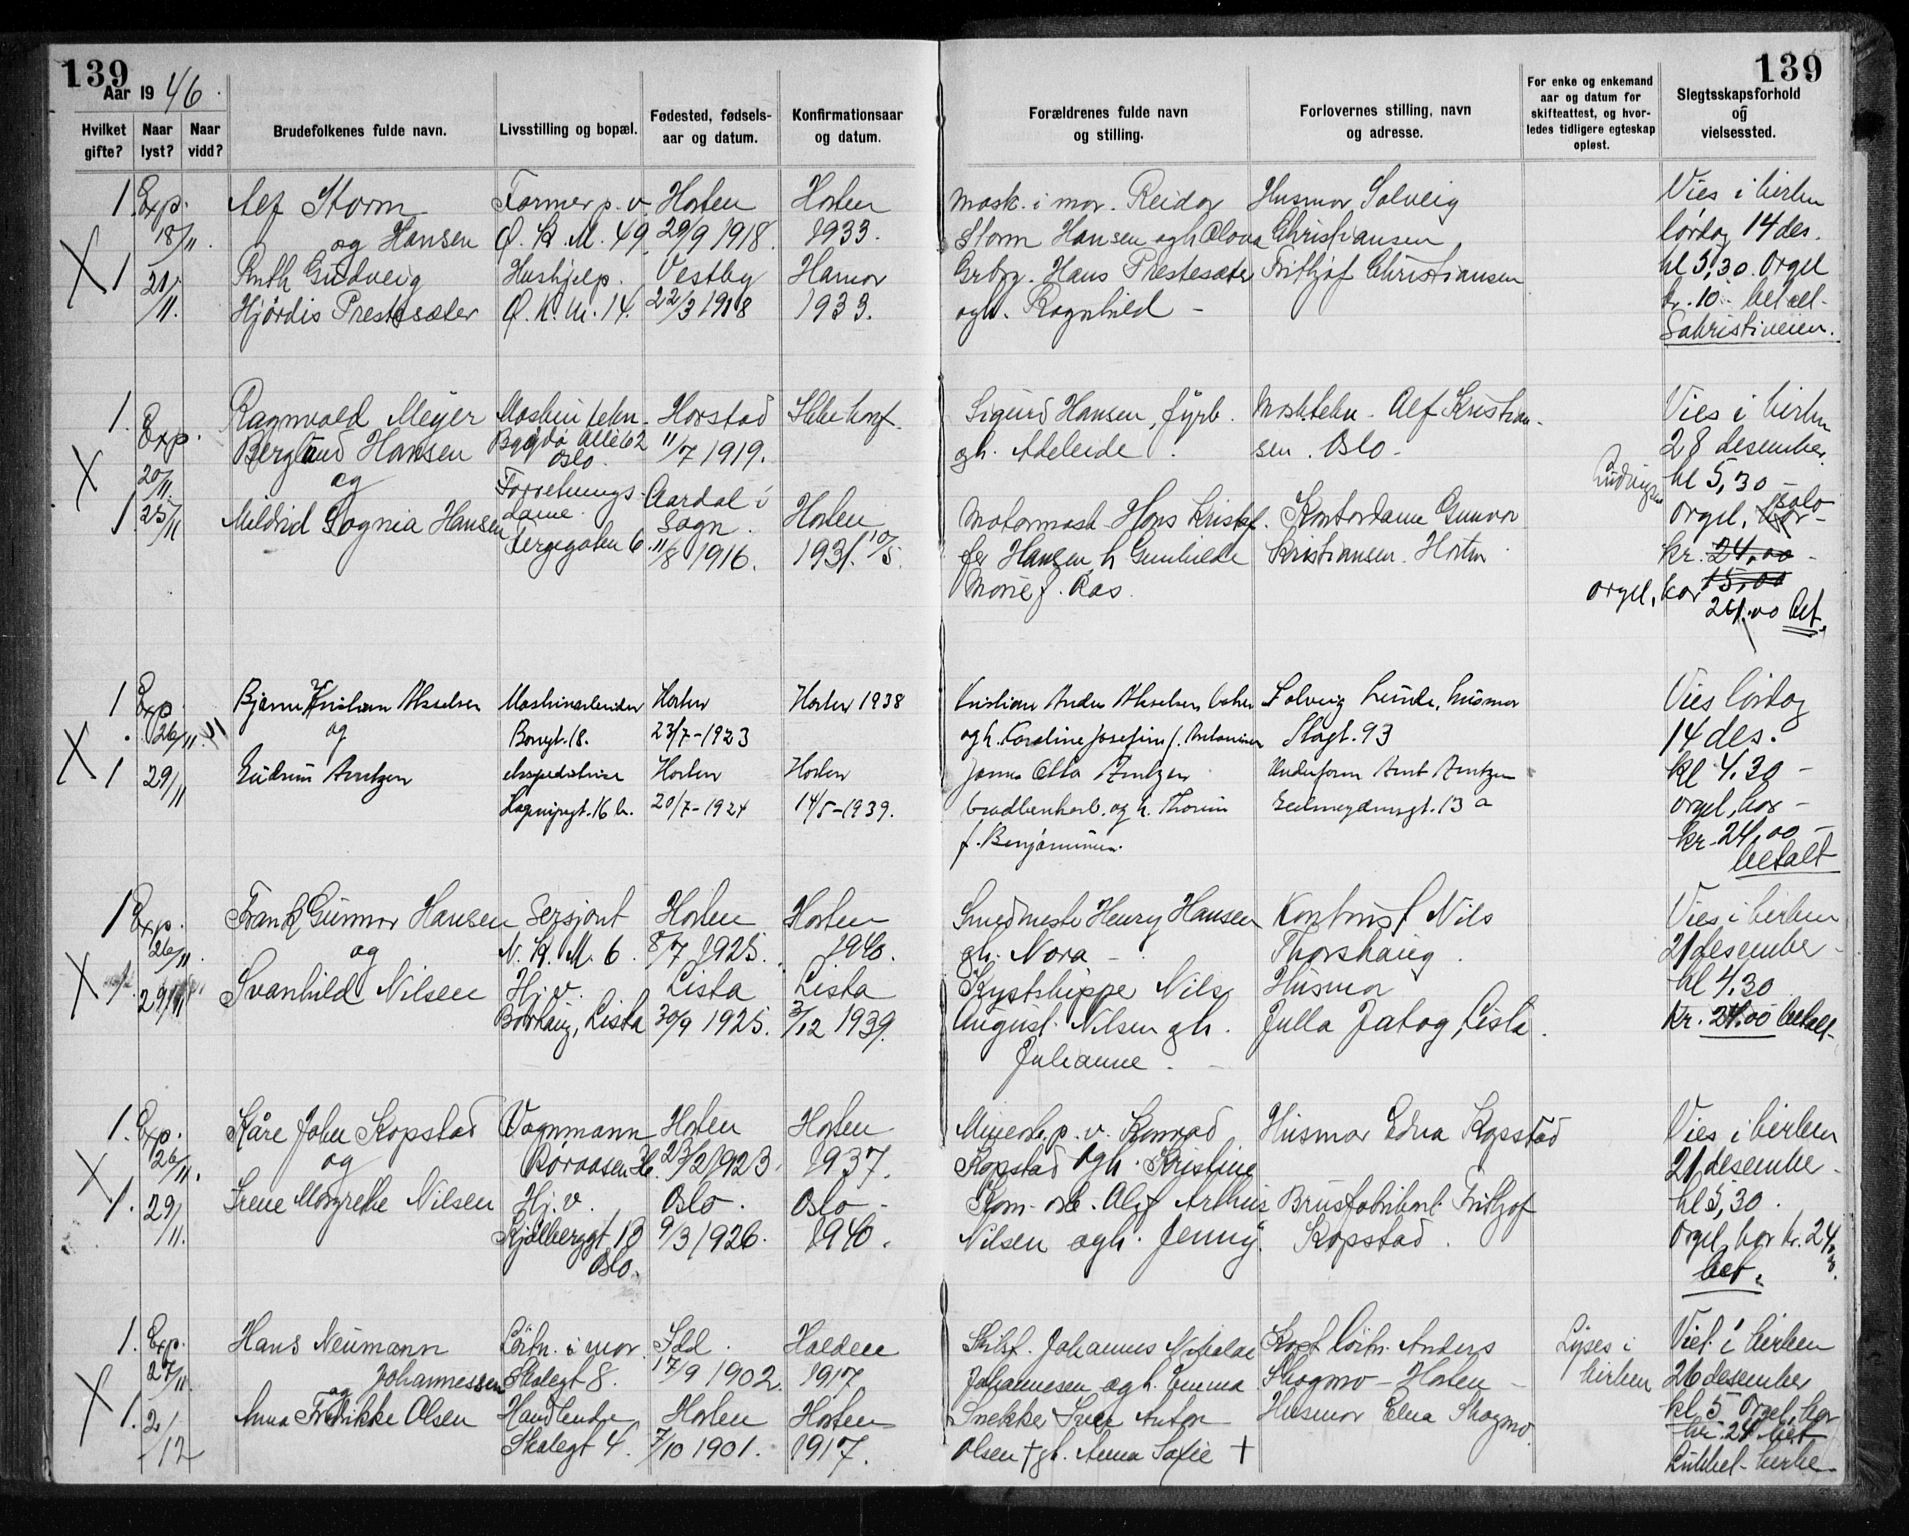 139
Aar 1946.
Hvilket gifte?
Naar lyst?
Naar vidd?
Brudefolkenes fulde navn.
Livsstilling og bopæl.
Fødested, fødsels-
aar og datum.
Konfirmationsaar
og datum.
Forældrenes fulde navn
og stilling.
Forlovernes stilling, navn
og adresse.
For enke og enkemand
aar og datum for
skifteattest, og hvor-
ledes tidligere egteskap
opløst.
139
Slegtsskapsforhold
og
vielsessted.
1. Exp. Alf Storm Former p. v. Horten Horten
18/11. og Hansen Ø. K. M. 49. 29/9 1918. 1933.
X 1 21/11. Ruth Gudveig Hushjelp. Vestby Hamar
Hjørdis Prestesæter Ø. K. M. 14. 22/3 1918 1933.
Mask. i mar. Reidar Husmor Solveig
Storm Hansen ogh Christiansen
Grbr. Hans Prestesæter Frithjof Christiansen
ogh. Ragnhild -
Vies i kirken
lørdag 14 des.
kl 5,30. Orgel
kr. 10.- betalt-
Sakristiveien.
1. Exp. Ragnvald Meyer Maskin tekn. Harstad Ikke konf.
X 20/11. Berglund Hansen Bygdø Allé 62 Oslo. 11/7 1919.
og
1 25/11 Mildrid Sognia Hansen Forretnings-dame. Aardal i Sogn. Horten
Fergegaten 6. 11/8 1916. 1931. 10/5.
Sigurd Hansen, fyrb. Masktekn. Alf Kristian-
gh. Adeleide. sen. Oslo.
Motormask. Hans Kristof- Kontordame Gunvor
fer Hansen h Gunhilde Kristiansen. Horten
Marie f. Aas.
Vies i kirken
28 desember
kl 5,30 -
orgel, solo
kr. 24,00 -
15,00
orgel, kor
24.00 bet.
1 Exp. Bjarne Kristian Akselsen Maskinarbeider Horten Horten 1938
26/11. og Borregt. 18. 23/7-1923
X 1 29/11 Gudrun Arntzen ekspeditrise Horten Horten
16 b. 20/7-1924 14/5-1939.
Kristian Anders Akselsen Solveig Lunde, husmor
ogh. Karoline Josefine f. Antonisen Stagt. 93
Otto Arntzen Underform Arnt Arntzen
og h. Thorun 13 a
f. Benjaminsen.
Vies lørdag
14 des.
kl 4.30 -
orgel, kor -
kr. 24,00 -
betalt
1 Exp. Frank Gunnar Hansen Sersjant Horten Horten
26/11. og N. K. M. 6. 8/7 1925. 1940.
X 1. 29/11 Svanhild Nilsen Hj. v. Lista Lista
Borhaug, Lista 30/9 1925. 3/12 1939.
Smedmester Henry Hansen Kontrist Nils
gh. Nora - Thorshaug.
Kystskipper Nils Husmor
August Nilsen gh. Julla Jatog, Lista.
Julianne.
Vies i kirken
21 desember -
kl 4,30
Kr. 24.00 betalt-
1. Exp. Kåre John Kopstad Vognmann Horten Horten
X 26/11. og Boraasen 36. 23/2 1923. 1937.
1. 29/11. Irene Margrethe Nilsen Hj. v. Oslo. Oslo -
Kjølberggt. 13 Oslo. 9/3 1926. 1940.
Minearb. p. v. Konrad Husmor Edna Kopstad
Kopstad ogh. Kristine
Arthur Brusfabrikant Frithjof
Nilsen ogh. Jenny. Kopstad.
Vies i kirken
21 desember -
kl 5,30.
Orgel, kor kr. 24,00.
bet.
1. Exp. Hans Neumann Løitn. i mar. Idd. Halden
X 27/11. Johannessen Skalegt 8. 17/9 1902. 1917
og
1. 2/12 Anna Fredrikke Olsen Handlende Horten Horten
Skalegt 4. 7/10 1901. 1917.
Skilsf. Johannes Nikolai Kapt løitn. Anders
Johannesen ogh. Emma Skogmo - Horten -
Snekker Iver Anton Husmor Elna Skogmo.
Olsen † gh. Anna Sofie †
Lyses i
kirken
Viet i kirken
26 desember
kl 5 Orgel, kor
kr. 24 bet